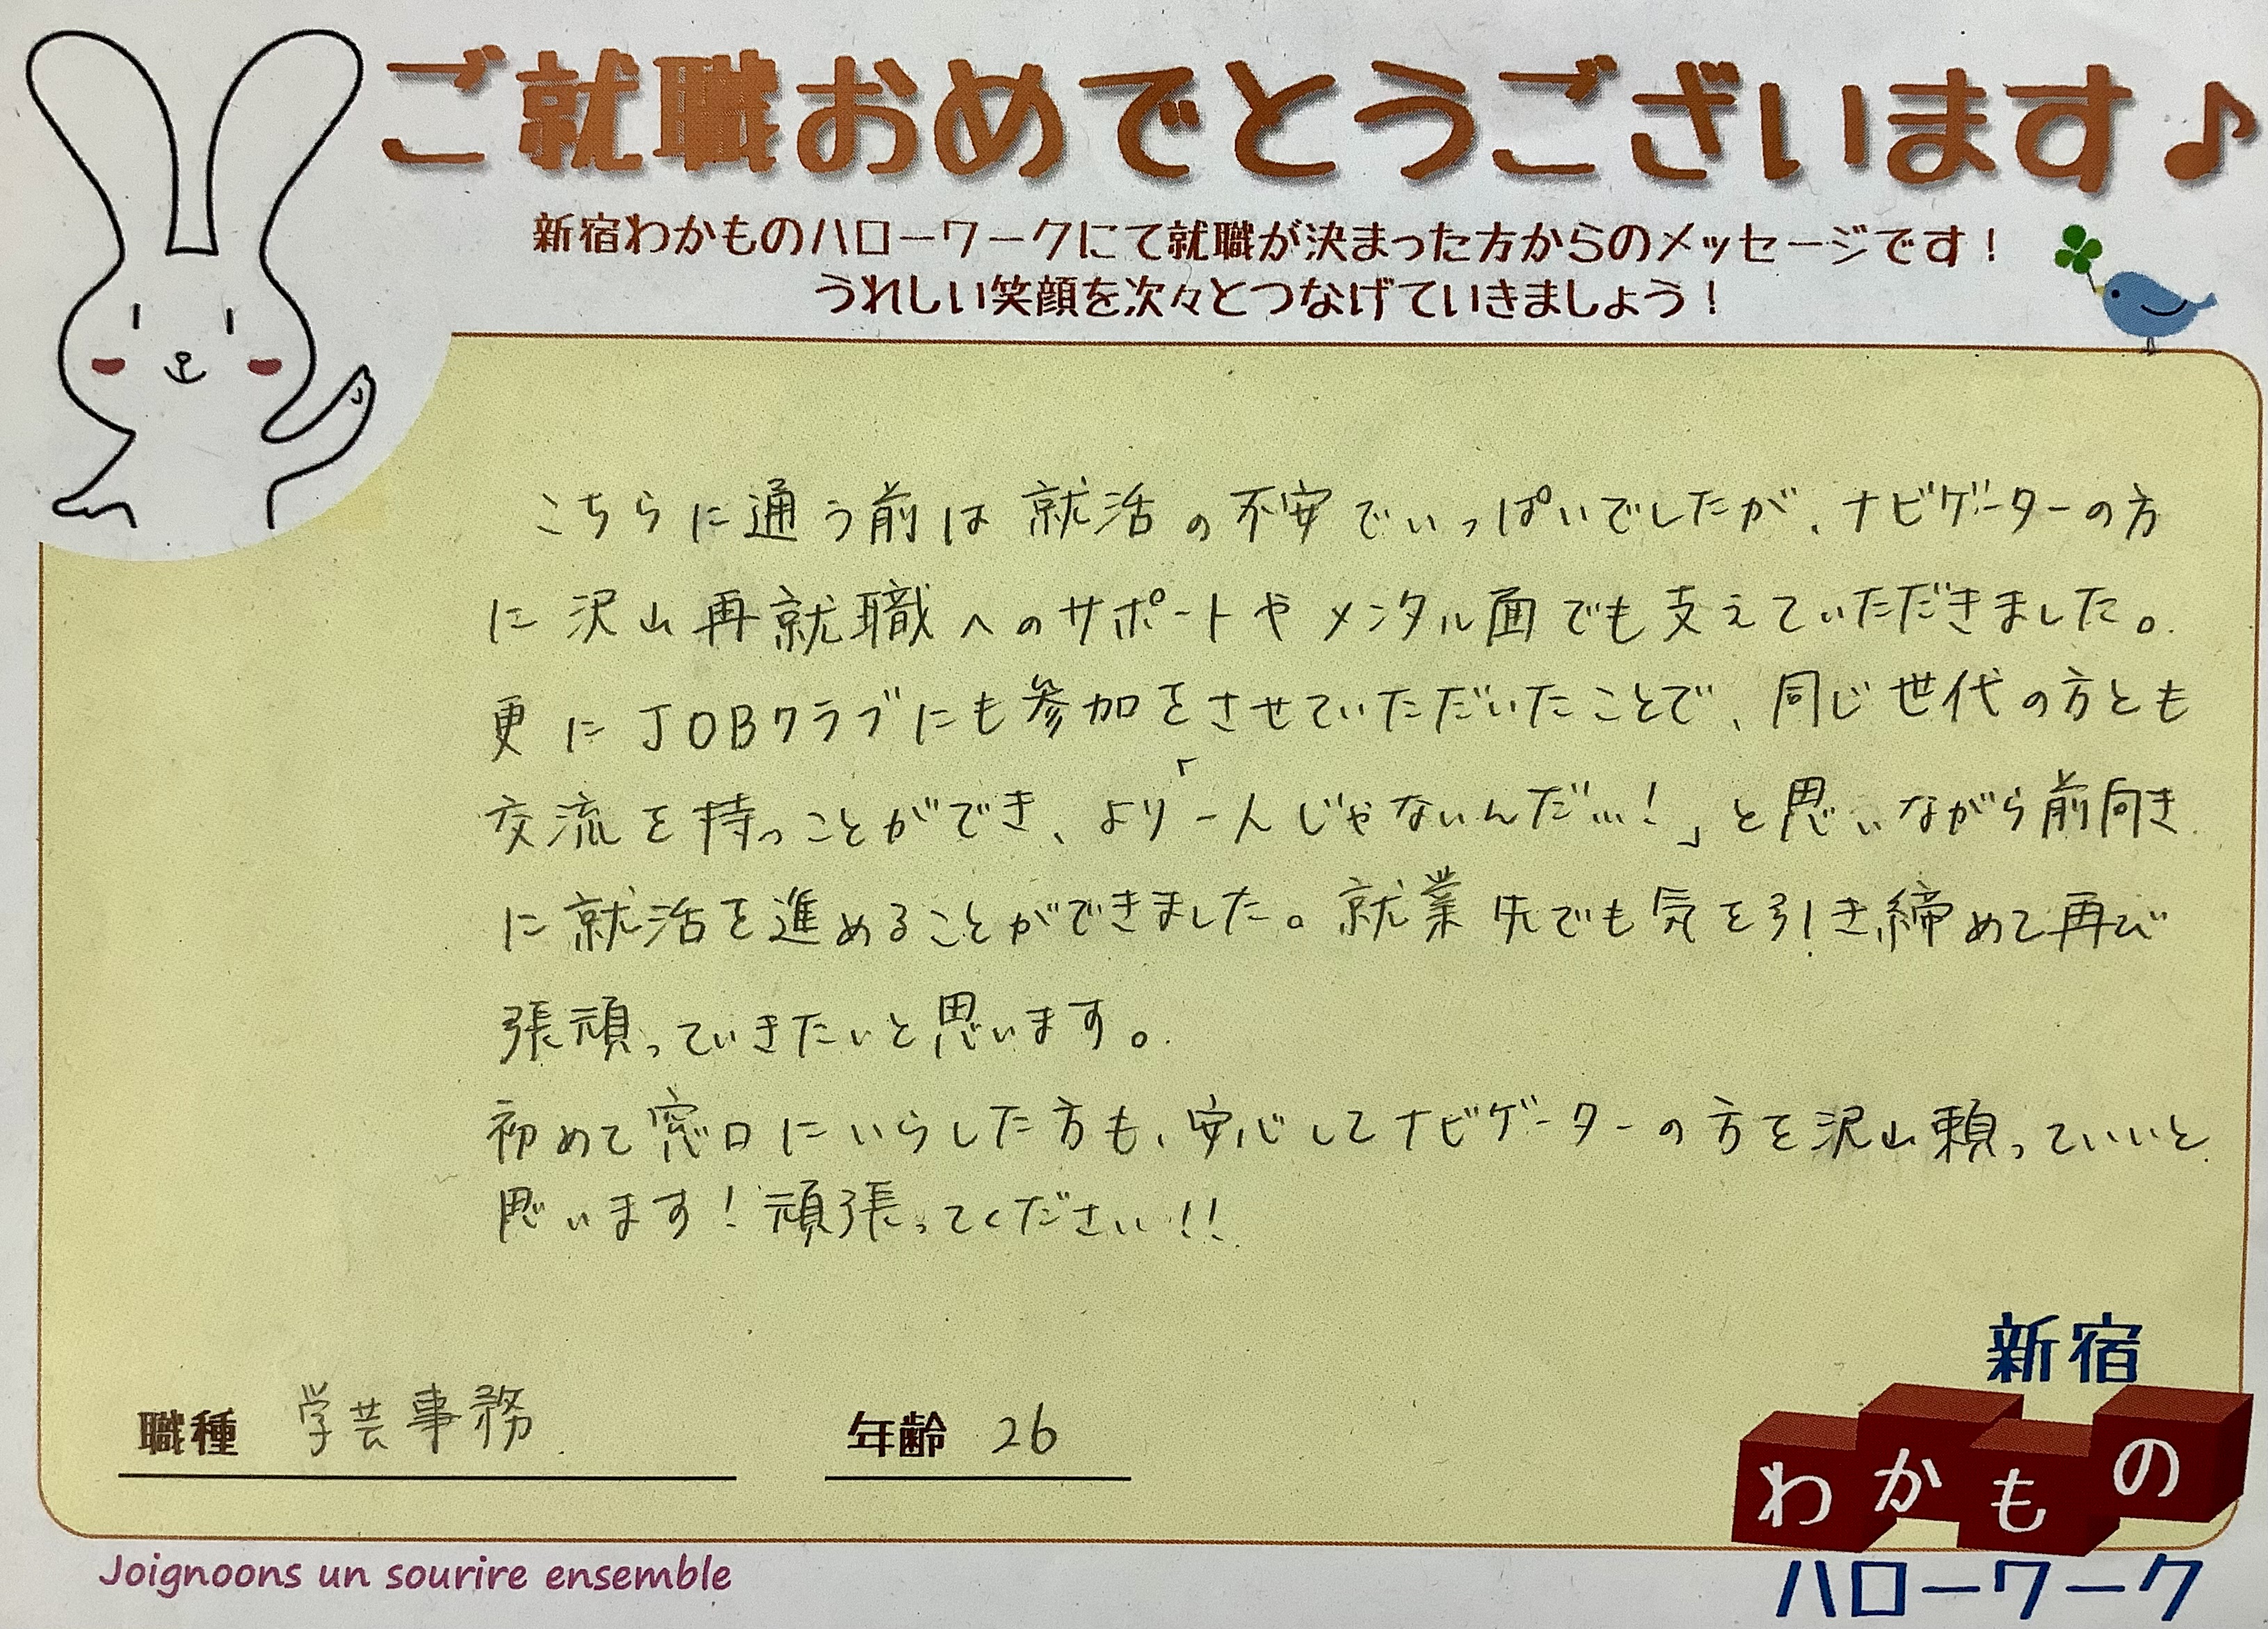 ご就職おめでとうございます♪
新宿わかものハローワークにて就職が決まった方からのメッセージです！
うれしい笑顔を次々とつなげていきましょう！
こちらに通う前は就活の不安でいっぱいでしたが、ナビゲーターの方
に沢山再就職へのサポートやメンタル面でも支えていただきました。
更にJOBクラブにも参加をさせていただいたことで、同じ世代の方とも
交流を持つことができ、より「一人じゃないんだ…！」と思いながら前向き
に就活を進めることができました。就業先でも気を引き締めて再び
張頑っていきたいと思います。
初めて窓口にいらした方も、安心してナビゲーターの方を沢山頼っていいと
思います！頑張ってください!!
職種 学芸事務
年齢 26
新宿
わかもの
ハローワーク
Joignoons un sourire ensemble